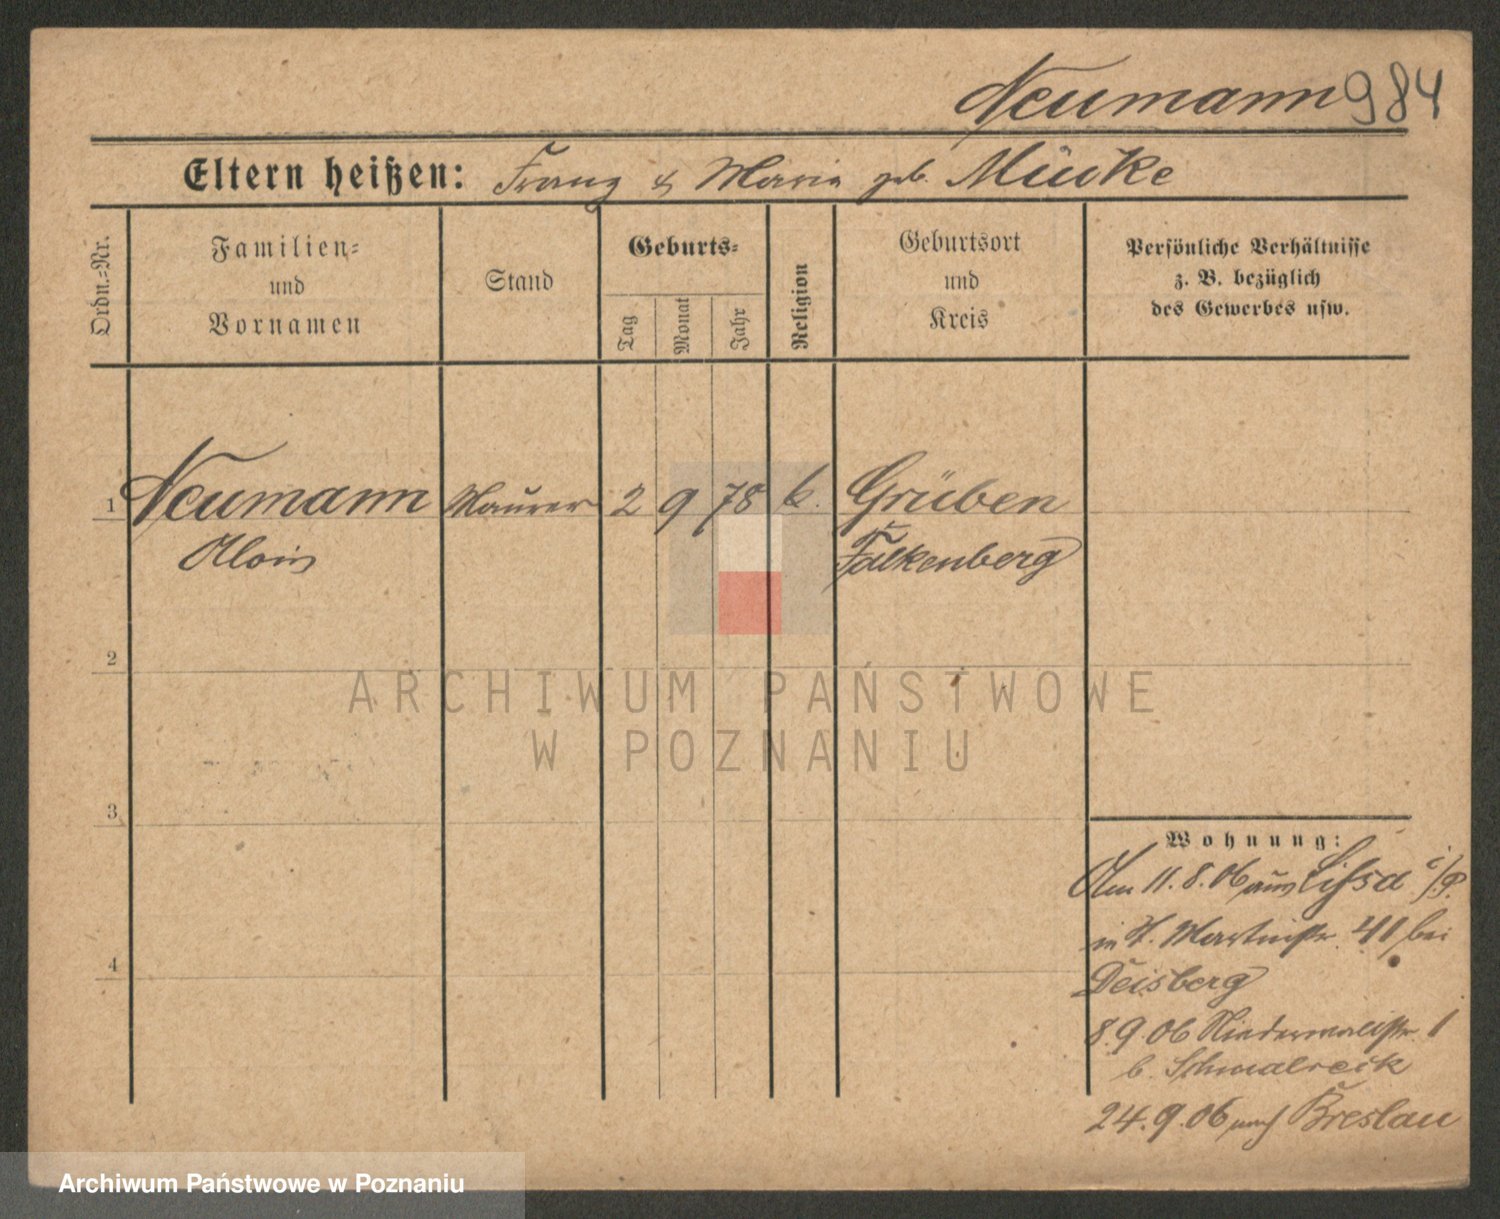 Neumann 984
Eltern heißen: Franz & Maria geb. Mücke
Ordn.-Nr.
Familien-
und
Vornamen
Stand
Geburts-
Tag
Monat
Jahr
Religion
Geburtsort
und
Kreis
Persönliche Verhältnisse
z. B. bezüglich
des Gewerbes usw.
1 Neumann Maurer 2 9 78 k. Grüben
Alois Falkenberg
2
ARCHIWUM PAŃSTWOWE
W POZNANIU
3
Wohnung:
Am 11.8.06 aus Lissa i/P.
in St. Martinstr. 41 bei
Deisberg
8.9.06 Niederwallstr. 1
b. Schmalreck
4
24.9.06 nach Breslau
Archiwum Państwowe w Poznaniu